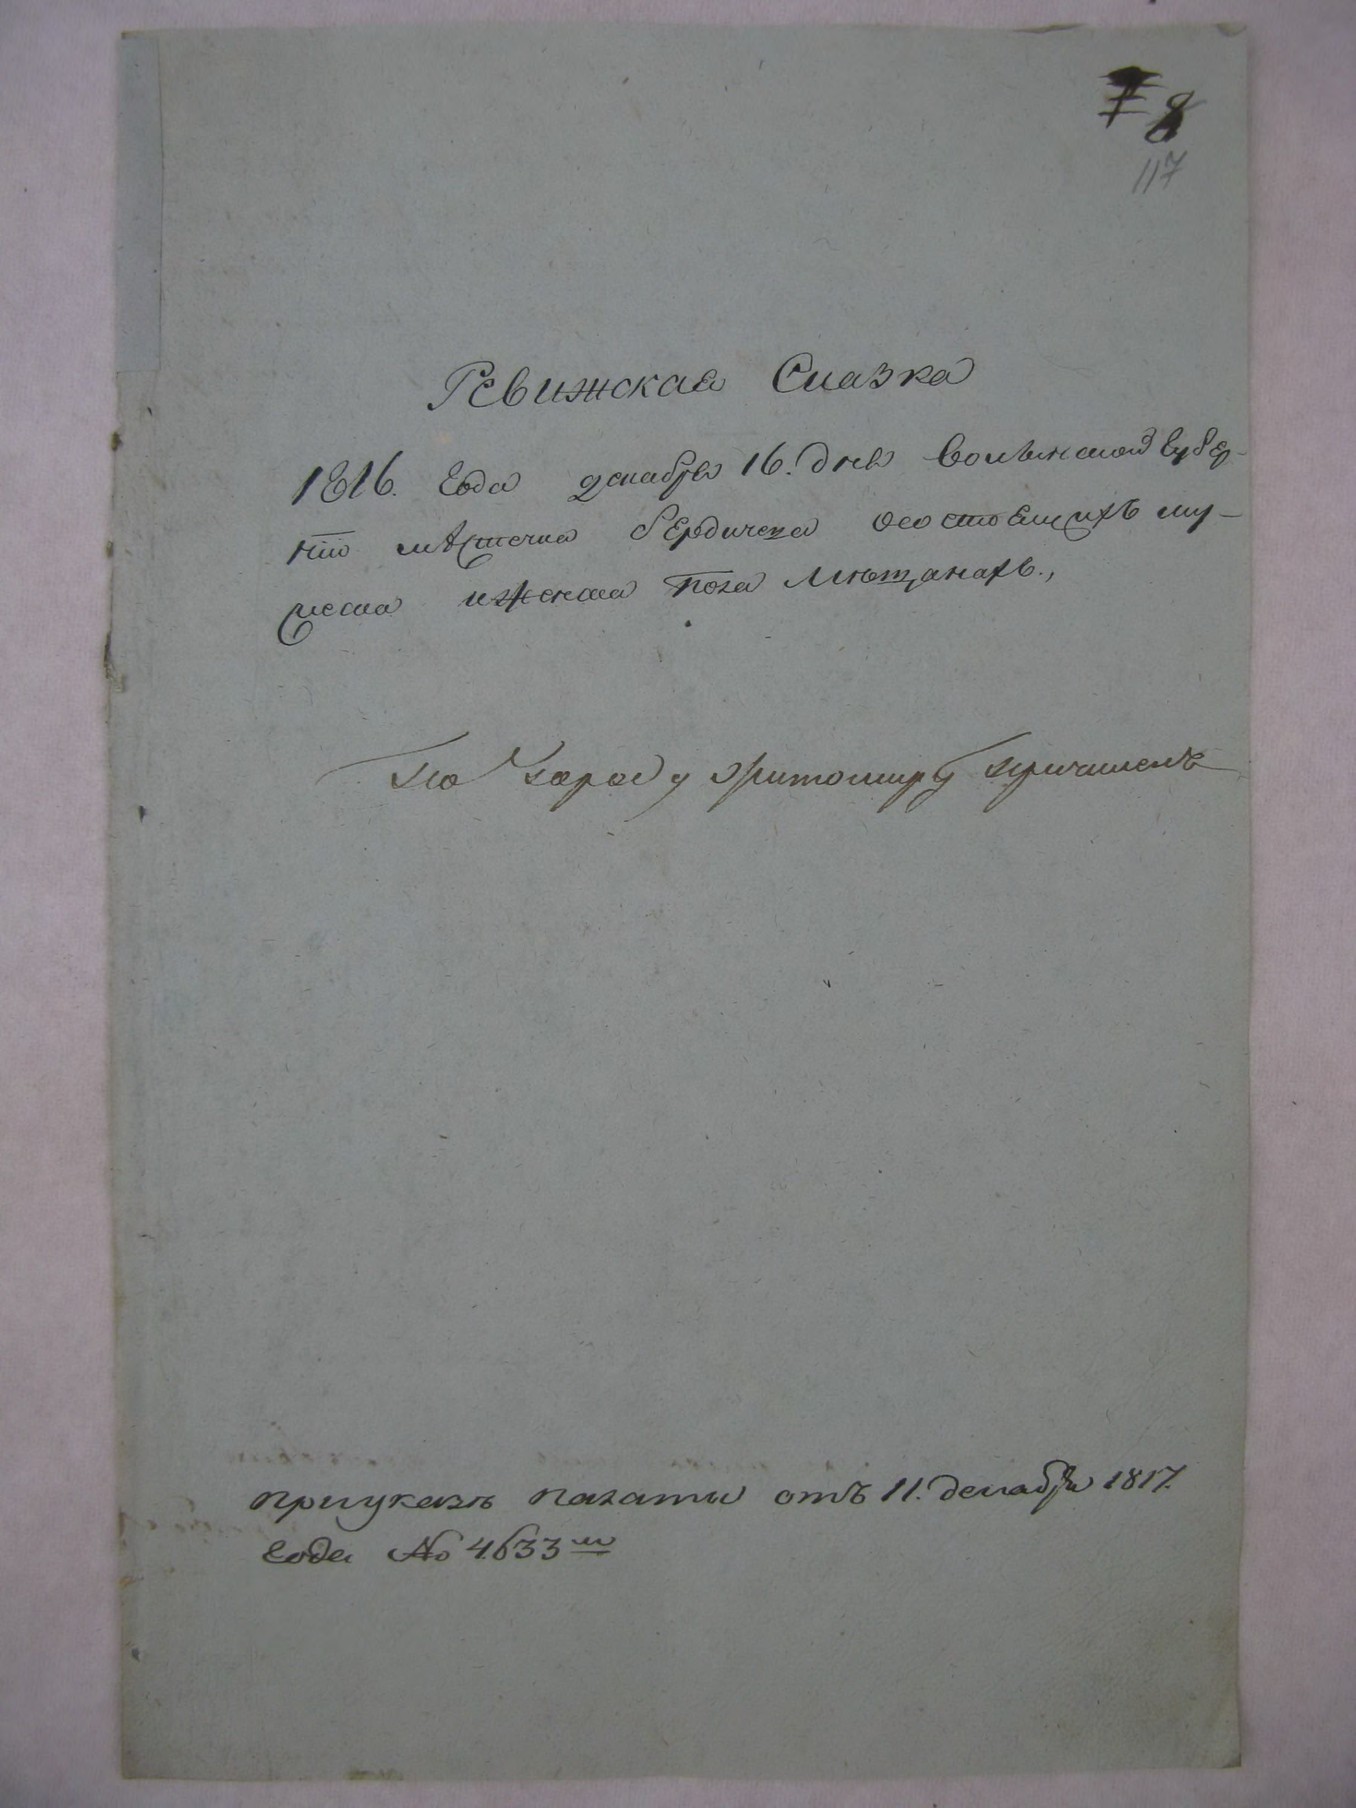 7 8
117
Ревижская Сказка
1816. года декабря 16. дня волынской губер-
нiи мѣстечка бердичева осостоящихъ му-
ческа иженска пола мѣщанахъ.,
по городу житомиру причисленъ
приуказѣ палаты отъ 11. декабря 1817.
года № 4633 м